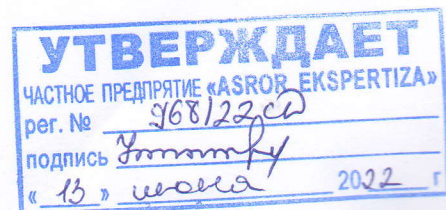 УТВЕРЖДАЕТ
ЧАСТНОЕ ПРЕДПРЯТИЕ «ASROR EKSPERTIZA»
рег. № 968/22 сд
подпись
« 13 » июня 2022 г